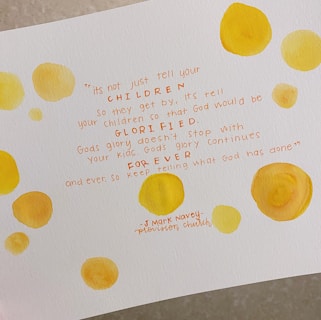 "its not just tell your
CHILDREN
so they get by, its tell
your children so that God would be
GLORIFIED.
Gods glory doesn't stop with
your kids Gods glory continues
FOREVER
and ever. so keep telling what God has done"
-J Mark Navey-